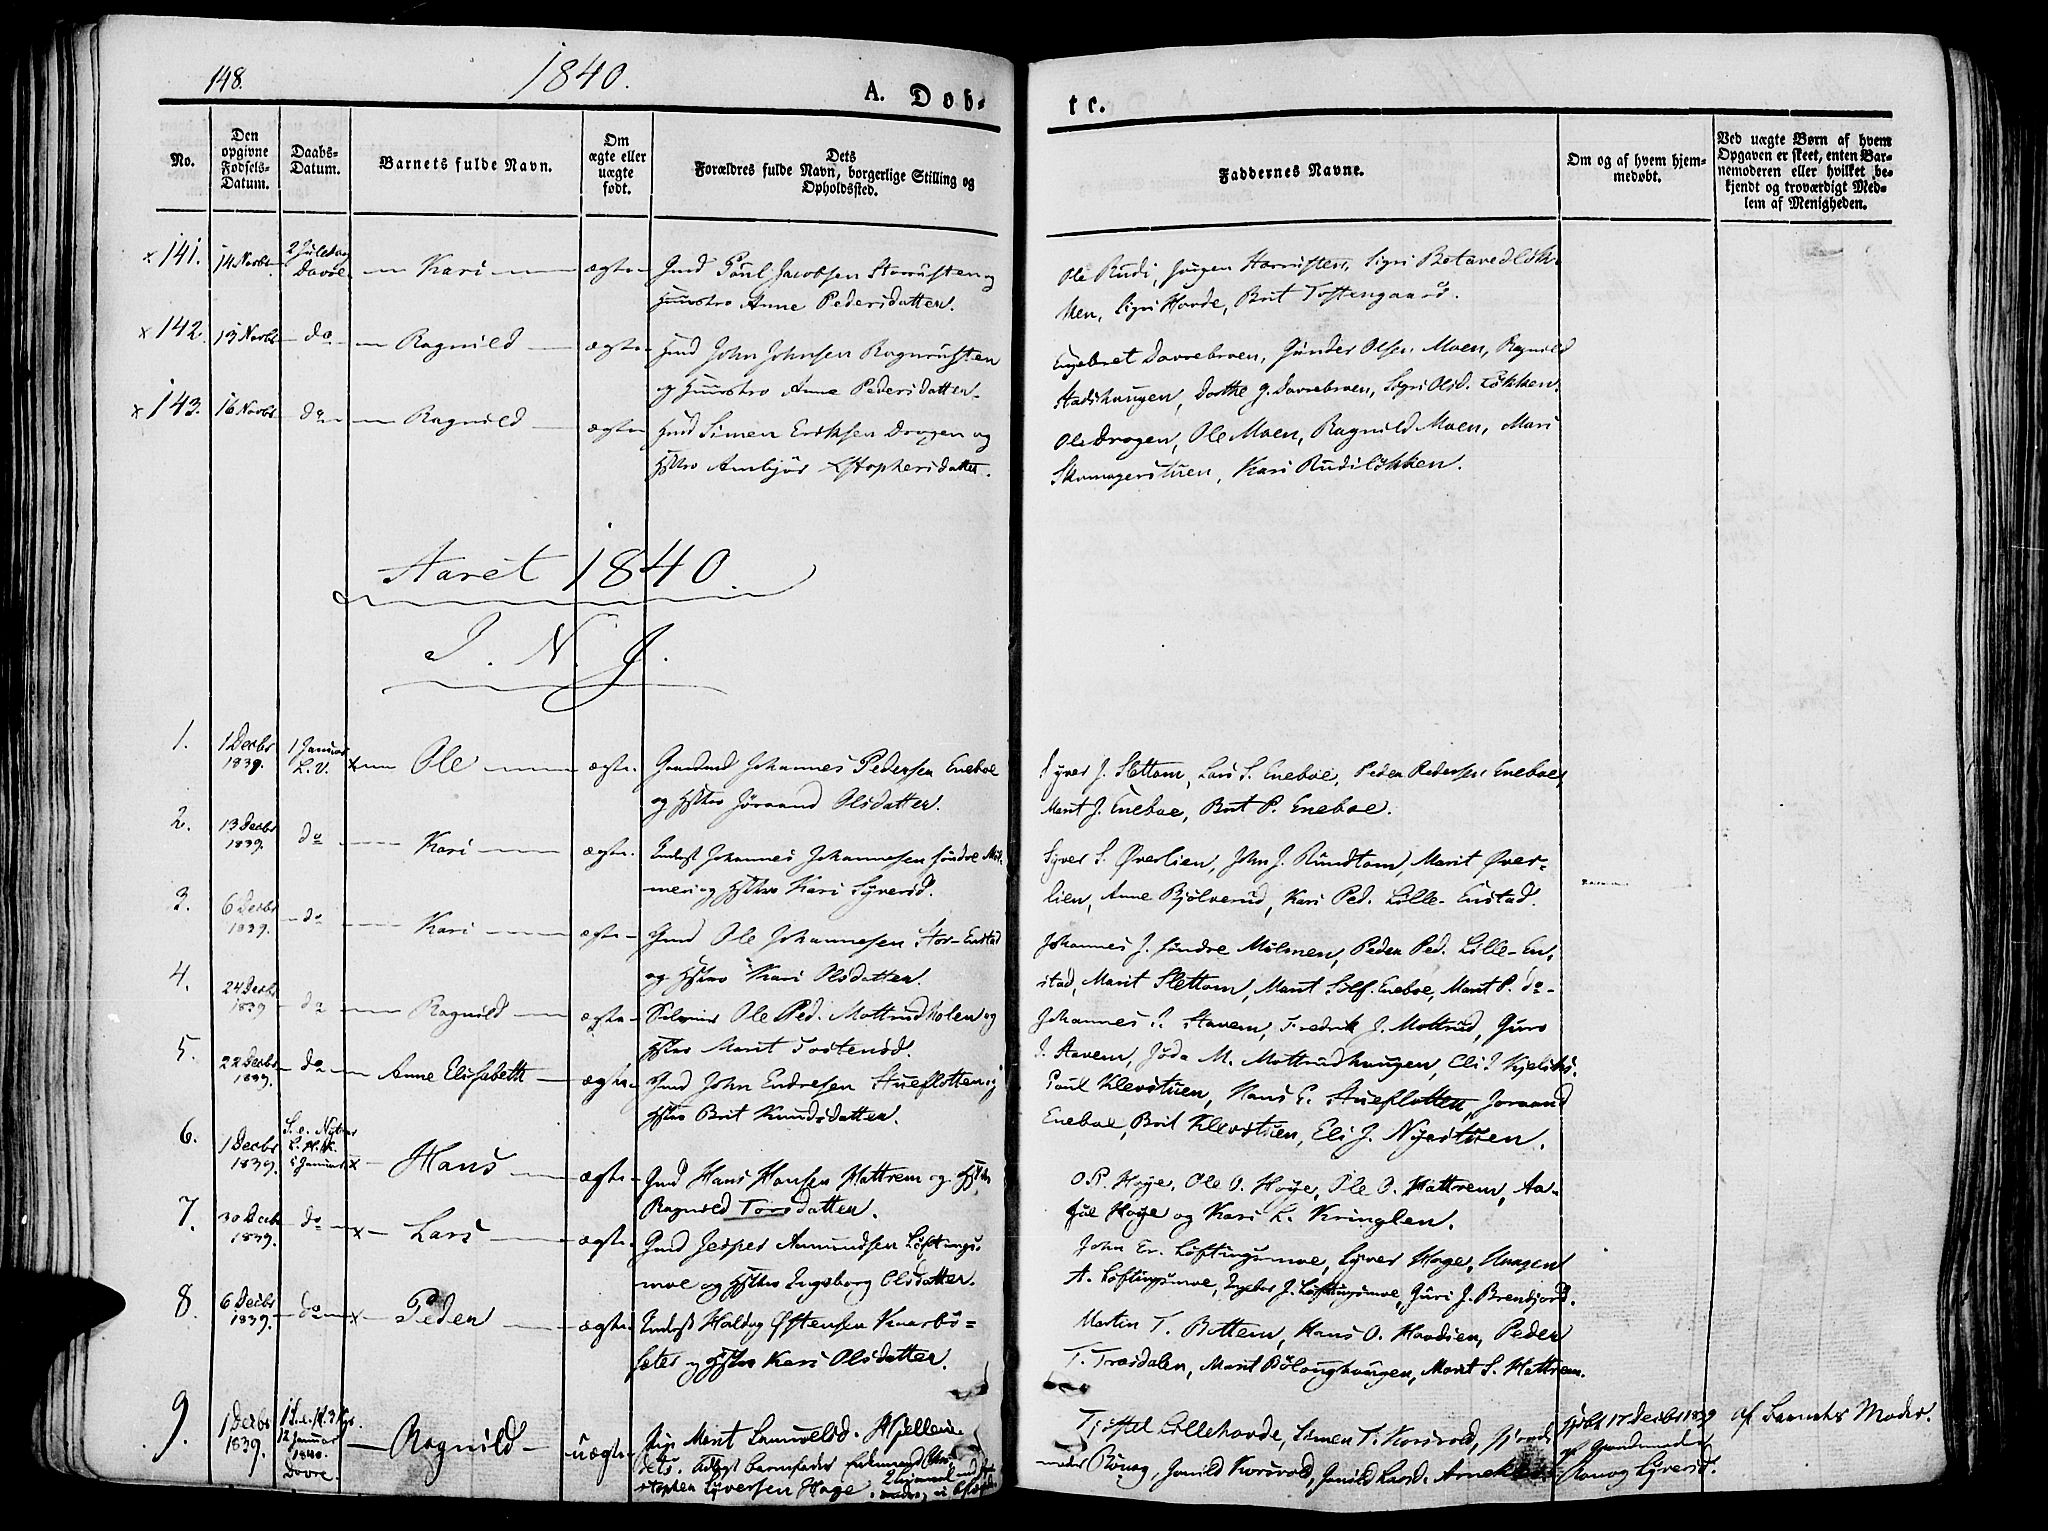 148.
1840.
A. Dob-
te.
No.
Den opgivne Fødsels-Datum.
Daabs-Datum.
Barnets fulde Navn.
Om ægte eller uægte født.
Dets Forældres fulde Navn, borgerlige Stilling og Opholdssted.
Faddernes Navne.
Om og af hvem hjem-
medøbt.
Ved uægte Børn af hvem
Opgaven er skeet, enten Bar-
nemoderen eller hvilket be-
kjendt og troværdigt Med-
lem af Menigheden.
x 141. 14 Novbr 2 Juledag Dovre — Kari — ægte Gmd Paul Jacobsen Storrusten og
Hunstro Anne Pedersdatter.
Ole Rudi, Jørgen Storrusten, Sigri
men, Sigri Hovde, Brit Toftemgaard.
x 142. 13 Novbr — do — Ragnild — ægte Hmd John Johnsen Ragnrusten
og Hunstro Anne Pedersdatter.
Engebret Dovrebroen, Gunder Olsen Moen, Ragnild
Stadshaugen, Dorthe G. Dovrebroen, Sigri Olsd. Løkken.
x 143. 16 Novbr do — Ragnild — ægte Hmd Simen Eriksen Drogen og
Hstro Ambjør Xstophersdatter.
Ole Drogen, Ole Moen, Ragnild Moen, Mari
Skomagerstuen, Kari Rudiløkken.
Aaret 1840.
I. N. J.
1. 1 Decbr 1839. 1 Januar L. V. x — Ole — ægte. Gaardmd Johannes Pedersen Eneboe
og Hstro Jøraand Olsdatter.
Syver J. Slettom, Lars S. Eneboe, Peder Pedersen Eneboe,
Marit J. Eneboe, Brit P. Eneboe.
2. 13 Decbr 1839. do — Kari — ægte. Inderst Johannes Johannesen søndre Mol-
men og Hstro Kari Syversd.
Syver S. Øverlien, John J. Rundtom, Marit Øver-
lien, Anne Bjølverud, Kari Ped. Lille-Enstad.
3. 6 Decbr 1839. — do — Kari — ægte — Gmd Ole Johannesen Stor-Enstad
og Hstro Kari Olsdatter.
Johannes J. søndre Molmen, Peder Ped. Lille-En-
stad, Marit Slettom, Marit Solf. Eneboe, Marit P. do-
4. 24 Decbr 1839 — do — Ragnild — ægte — Ole Ped. Mottrudholen og
Hstro Marit Tostensd.
Johannes I. Stavem, Fredrik J. Mottrud, Guro
I. Stavem, Joda M. Mottrudhaugen, Eli I.
5. 22 Decbr 1839. — do — Anne Elisabeth — ægte — Gmd John Endresen Stueflotten og
Hstro Brit Knudsdatter.
Paul Klevstuen, Hans E. Stueflotten, Joraand
Eneboe, Brit Klevstuen, Eli J. Nystuen.
6. 1 Decbr 1839. S. e. Nytaar L. H. K. 5 Januar x — Hans — ægte — Gmd Hans Hansen Hattrem og Hstro
Ragnild Torsdatter.
O. P. Hoye, Ole O. Hoye, Ole O. Hattrem, Aa-
Hoye og Kari L. Kringlen.
7. 30 Decbr 1839. do — x — Lars — ægte. Gmd Jesper Amundsen Løftings-
moe og Hstro Ingeborg Olsdatter.
John Er. Løftingsmoe, Syver Hage,
A. Løftingsmoe, Ingebor J. Løftingsmoe, Guri J. Brendjord.
8. 6 Decbr 1839. — do — x — Peder — ægte. Inderst Haldog Østensen Knarbø-
sæter og Hstro Kari Olsdatter.
Martin T. Bottem, Hans O. Havdien, Peder
T. Træsdalen, Marit Bolonghaugen, Marit S. Hattrem.
9. 1 Decbr 1839. 1 S. e. H. 3 Kgr. 12 Januar 1840. Dovre. — Ragnild — uægte Pige Marit Samuelsd.
Barnefader Xstophen Syversen Hage.
Tjøstel Lillehovde, Simen T. Korsvold,
moder Rønog, Jonild Korsvold, Jonild Larsd.
Hjdbt 17 Decbr 1839
af
Rønog Syversd.
af Barnets Moder.